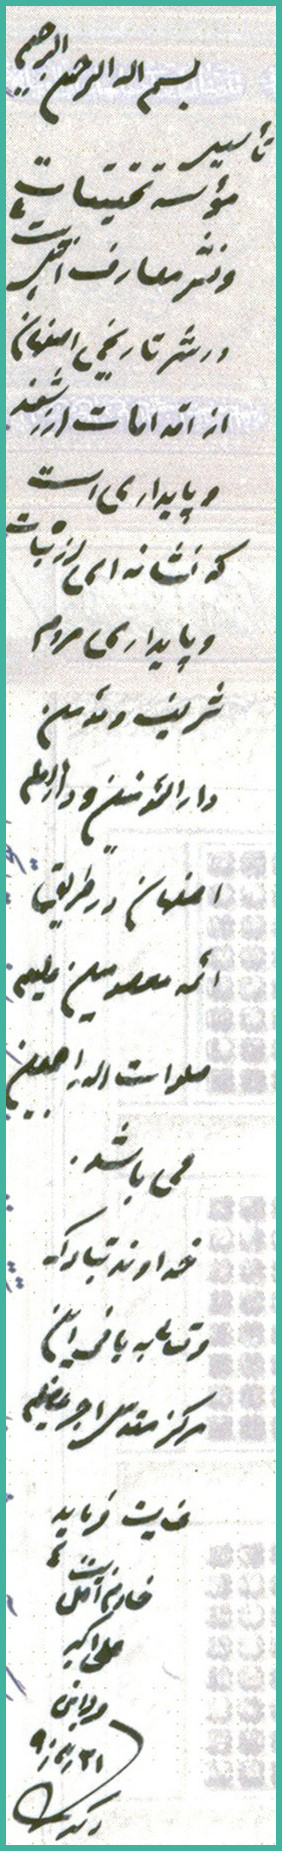 بسم الله الرحمن الرحیم
تأسیس
مؤسسه تحقیقات
و نشر معارف اهل بیت ع
در شهر تاریخی اصفهان
از اقدامات ارزشمند
و پایداری است
که نشانه ای از ثبات
و پایداری مردم
شریف و مؤمن
دارالمؤمنین و دارالعلم
اصفهان در طریق
ائمه معصومین علیهم
صلوات الله اجمعین
می باشد.
خداوند تبارک
و تعالی به بانی این
مرکز مقدس اجر عظیم
عنایت فرماید
خادم اهل بیت ع
علی اکبر
۳۱